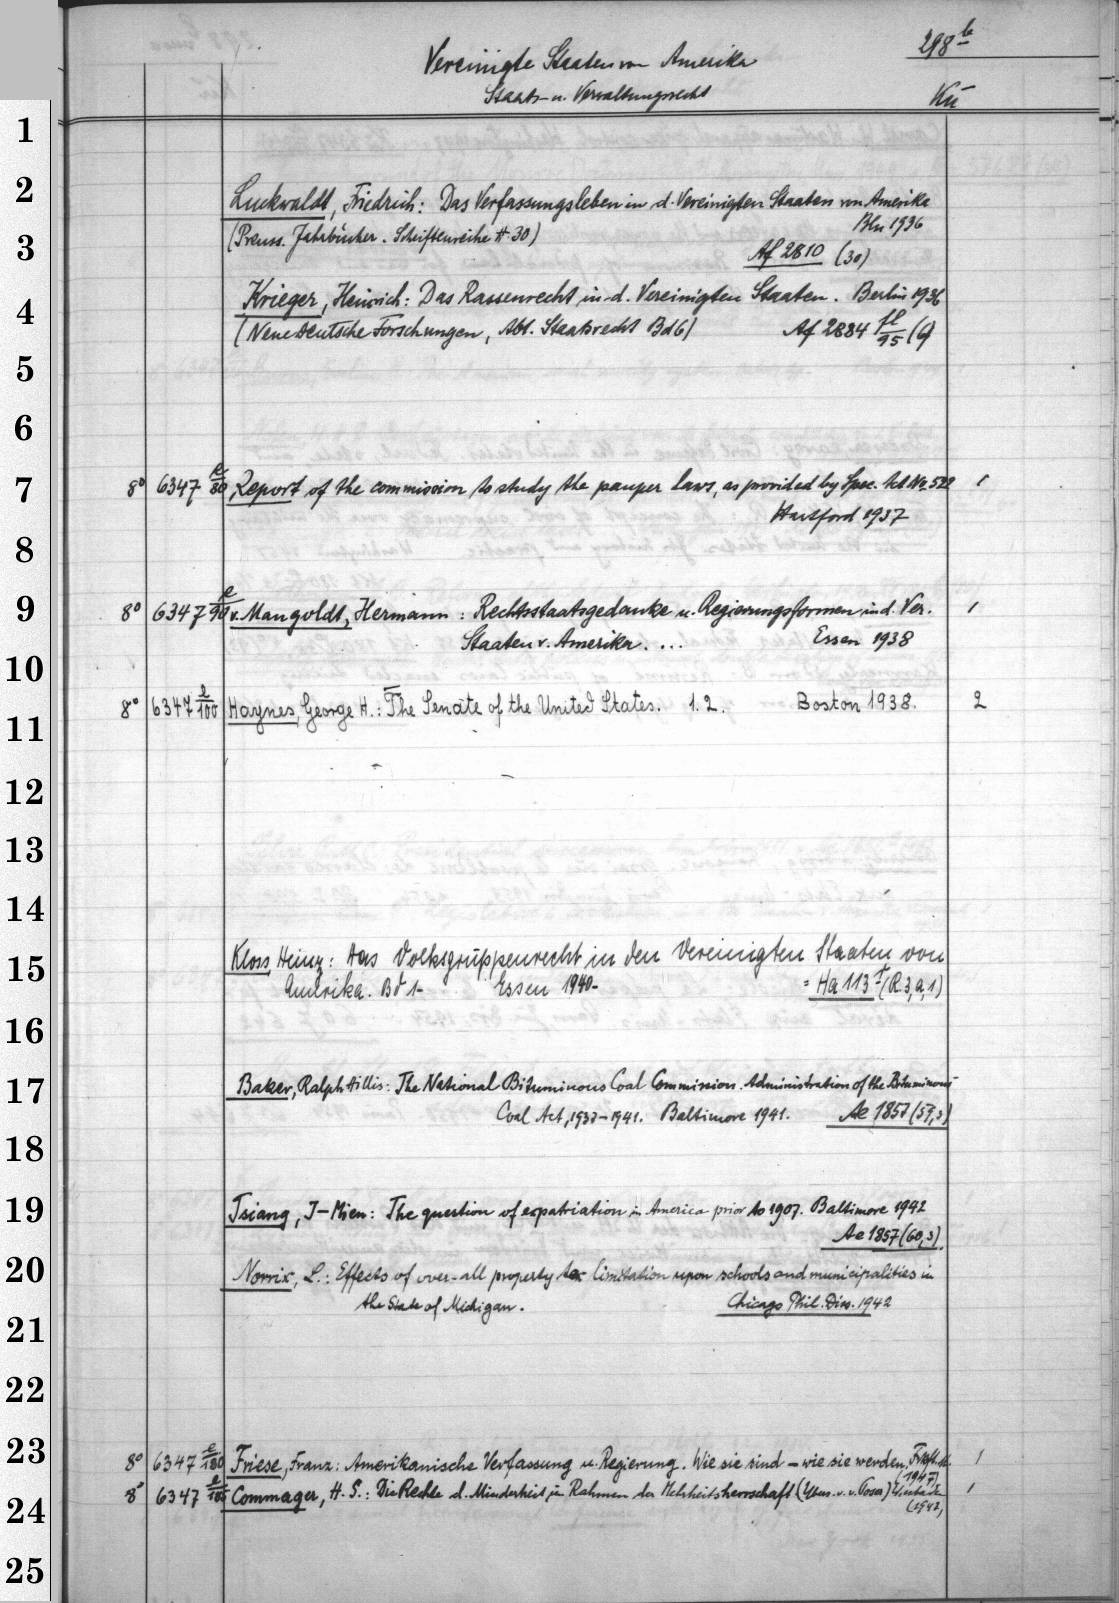 298 b
Vereinigte Staaten von Amerika
Staats- u. Verwaltungsrecht
Kü
1
2
Luckwaldt, Friedrich: Das Verfassungsleben in d. Vereinigten Staaten von Amerika
Bln 1936
(Preuss. Jahrbücher. Schriftenreihe # 30)
3
Af 2810 (30)
Krieger, Heinrich: Das Rassenrecht in d. Vereinigten Staaten. Berlin 1936
4
(Neue Deutsche Forschungen, Abt. Staatsrecht Bd 6) Af 2884 fl/95 (6)
5
6
7
8° 6347 e/80 Report of the commission to study the pauper laws, as provided by Spec. Act No. 522 1
Hartford 1937
8
9
8° 6347 e/90 v. Mangoldt, Hermann: Rechtsstaatsgedanke u. Regierungsformen in d. Ver. 1
Staaten v. Amerika. ... Essen 1938
10
8° 6347 e/100 Haynes, George H.: The Senate of the United States. 1. 2. Boston 1938. 2
11
12
13
14
Kloss, Heinz: Das Volksgruppenrecht in den Vereinigten Staaten von
15
Amerika. Bd 1- Essen 1940- = Ha 113 f (R. 3, a, 1)
16
17
Baker, Ralph Hillis: The National Bituminous Coal Commission. Administration of the Bituminous
Coal Act, 1937-1941. Baltimore 1941. Ae 1857 (59,3)
18
19
Tsiang, I-Mien: The question of expatriation in America prior to 1907. Baltimore 1942
Ae 1857 (60,3)
20
Norrix, L.: Effects of over-all property tax limitation upon schools and municipalities in
the State of Michigan. Chicago Phil. Diss. 1942
21
22
23
8° 6347 e/180 Friese, Franz: Amerikanische Verfassung u. Regierung. Wie sie sind - wie sie werden. 1
(1947)
8° 6347 e/185 Commager, H. S.: Die Rechte d. Minderheit im Rahmen der Mehrheitsherrschaft (Übers. v. v. Poser) 1
24
25